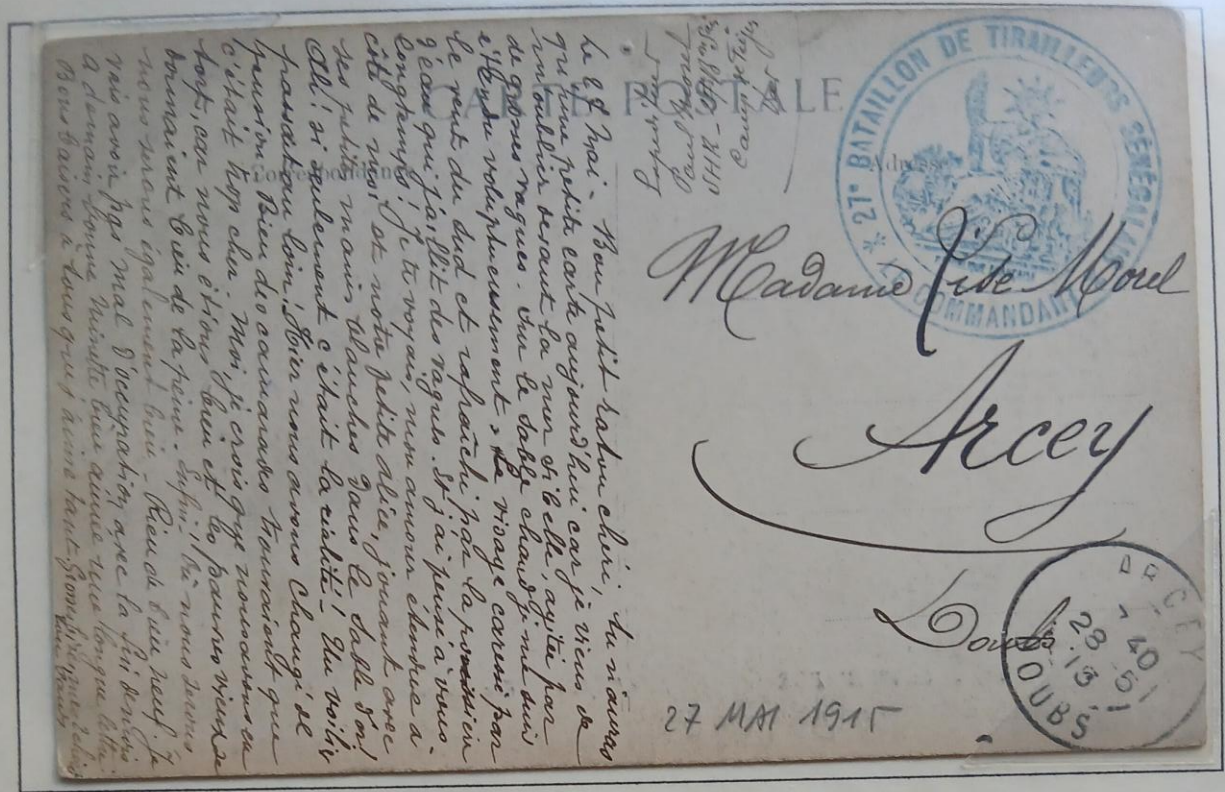 CARTE POSTALE
Correspondance
Adresse
* 27e BATAILLON DE TIRAILLEURS SÉNÉGALAIS *
COMMANDANT
Le 25 Mai - Mon petit raton chéri, tu n'auras
qu'une petite carte aujourd'hui car je viens de
m'oublier devant la mer si belle, agitée par
de grosses vagues. Sur le sable chaud je me suis
étendu voluptueusement, le visage caressé par
le vent du sud et rafraîchi par la poussière
d'eau qui jaillit des vagues. Et j'ai pensé à vous
longtemps! Je te voyais, mon amour étendue à
côté de moi, et notre petite alice, jouant avec
ses petites mains blanches dans le sable d'or!
Ah! si seulement c'était la réalité! Un voilier
passait au loin! Hier nous avons changé de
pension. Bien des camarades trouvaient que
c'était trop cher. Moi je crois que nous avons eu
tort, car nous étions bien et les pauvres vieux se
donnaient bien de la peine. Enfin! Ici nous serons
nous serons également bien - Rien de bien neuf. Je
vais avoir pas mal d'occupation avec la fin du mois
A demain, bonne Minette bien aimée une longue lettre.
Bons baisers à tous que j'aime tant
Madame Vve Morel
Arcey
Doubs
ARCEY
7 40
28 - 5
15
DOUBS
27 MAI 1915